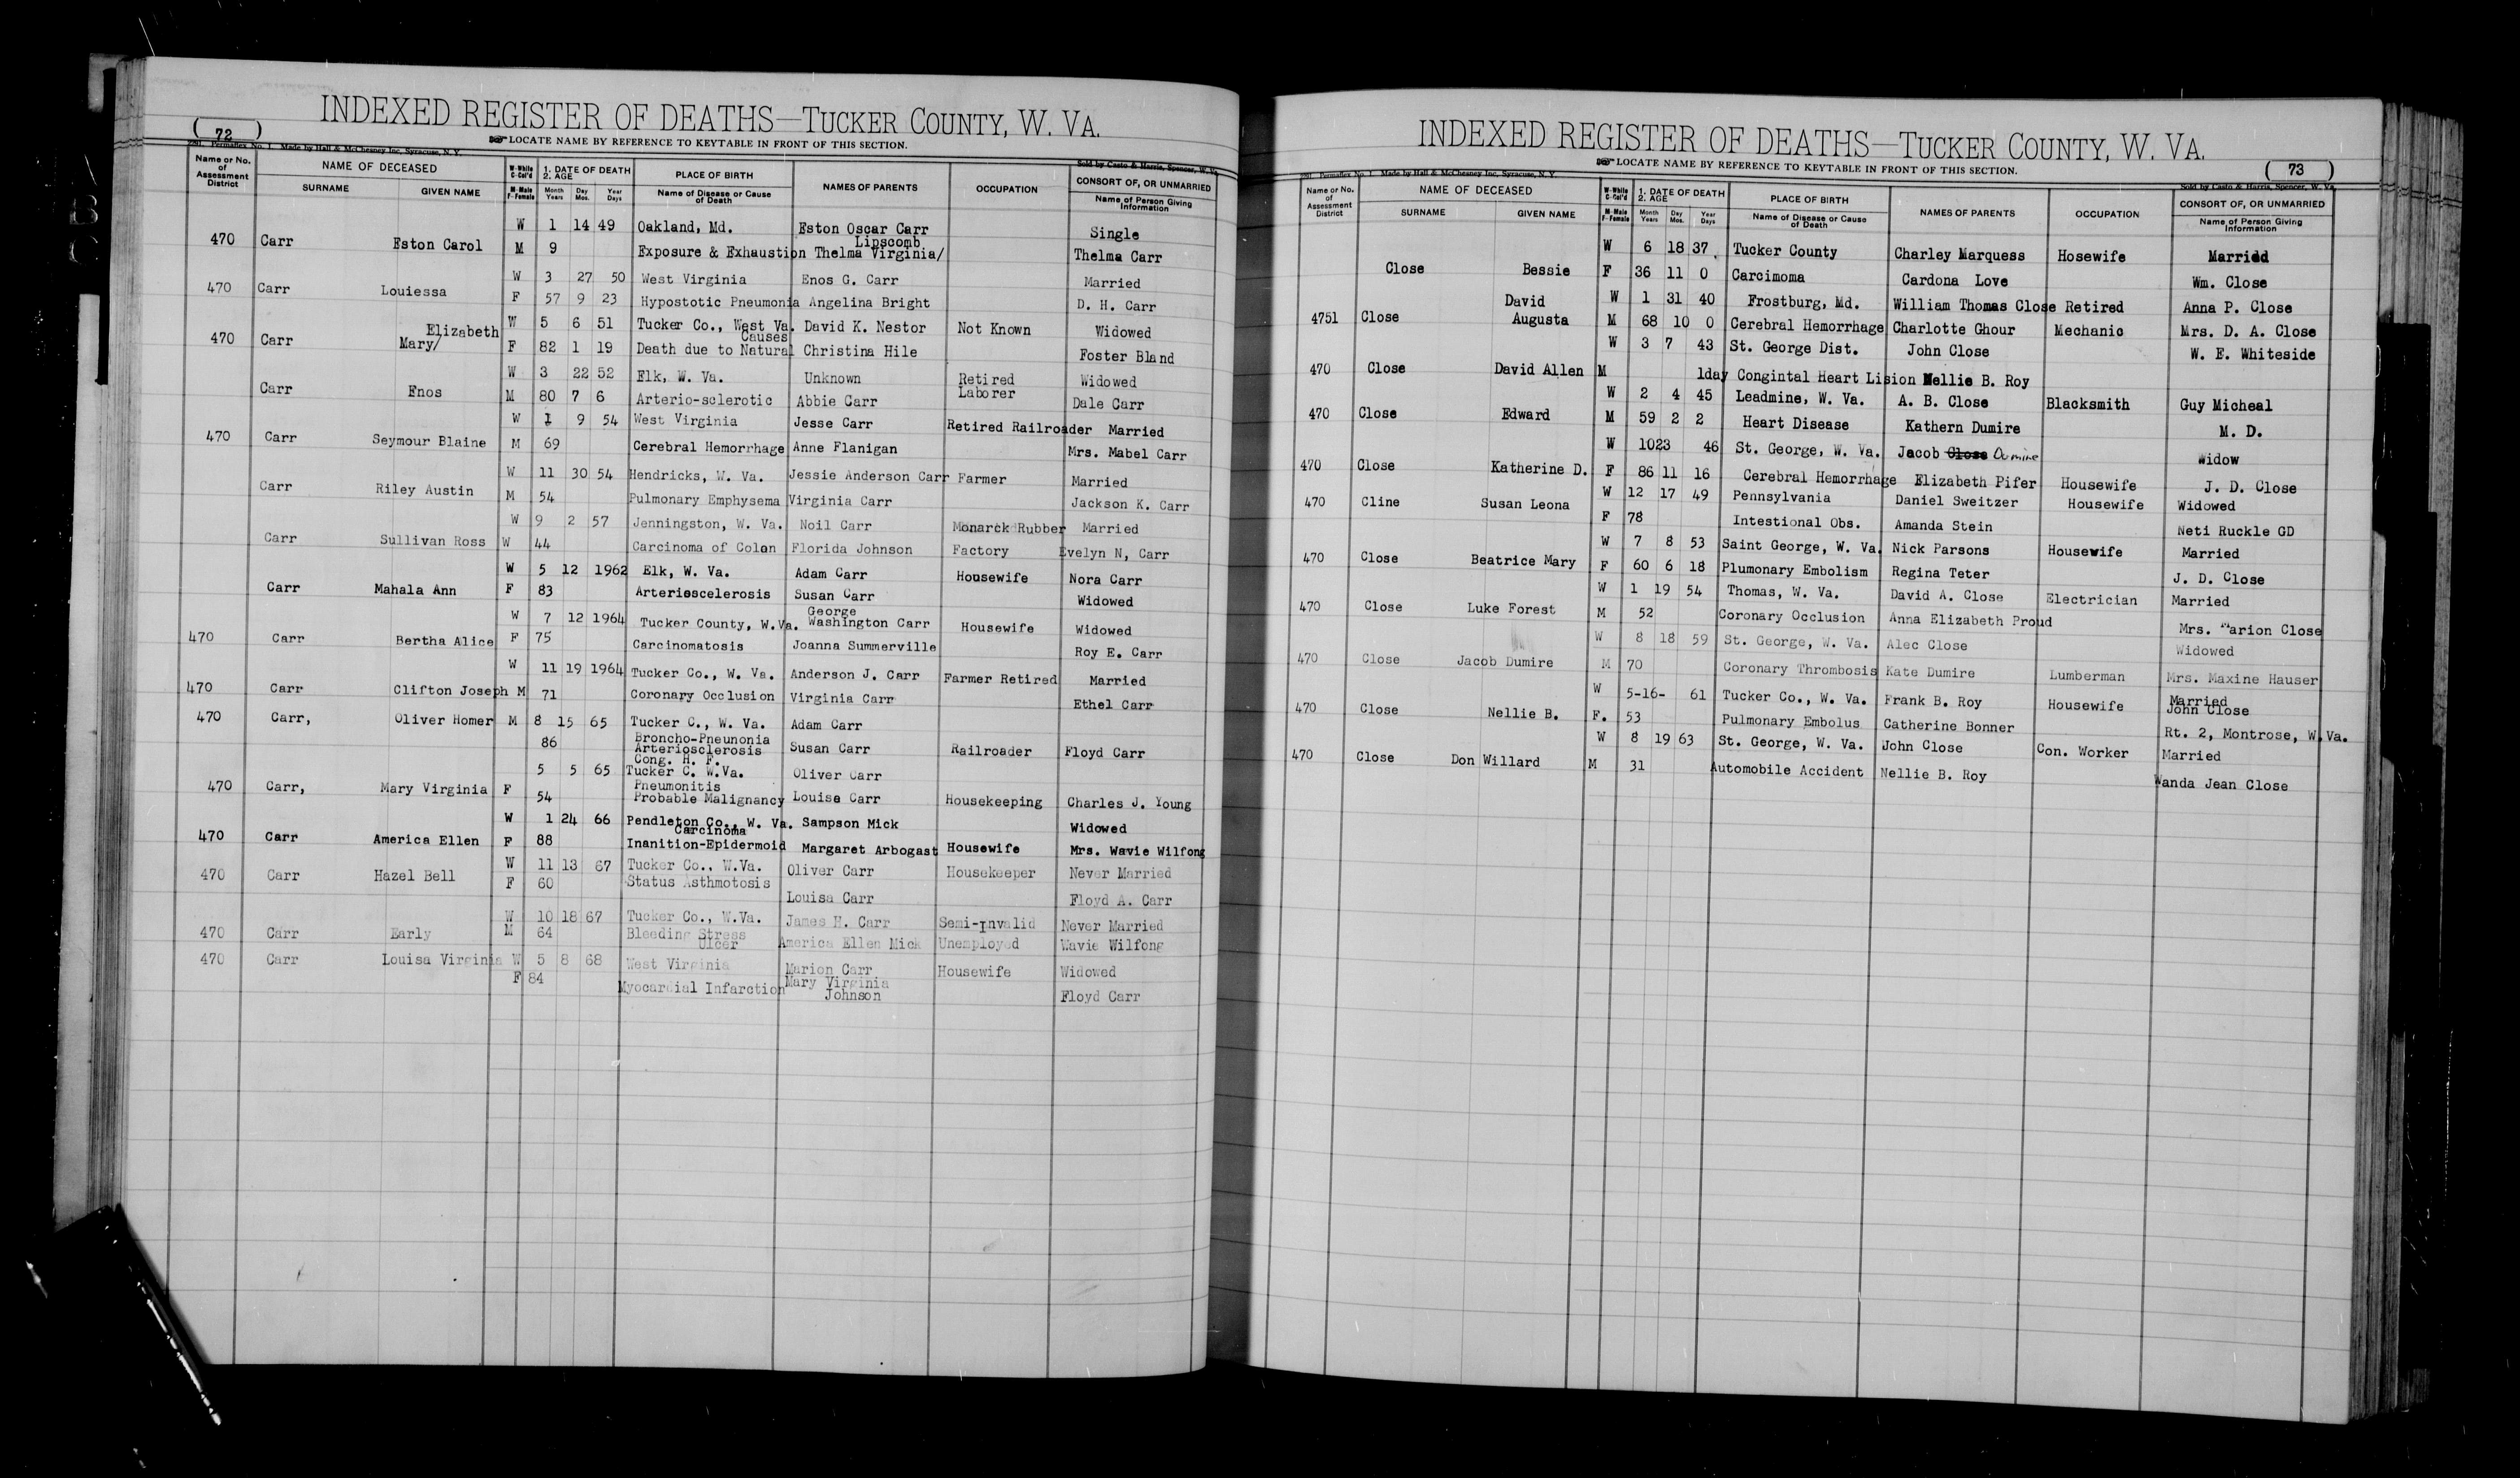 INDEXED REGISTER OF DEATHS—TUCKER COUNTY, W. VA.
( 72 )
LOCATE NAME BY REFERENCE TO KEYTABLE IN FRONT OF THIS SECTION.
Permaflex No. 1 Made by Hall & McChesney Inc. Syracuse, N. Y.
Sold by Casto & Harris, Spencer, W. Va.
Name or No. of Assessment District NAME OF DECEASED W-White C-Col'd 1. DATE OF DEATH 2. AGE PLACE OF BIRTH NAMES OF PARENTS OCCUPATION CONSORT OF, OR UNMARRIED
SURNAME GIVEN NAME M-Male F-Female Month Years Day Mos. Year Days Name of Disease or Cause of Death Name of Person Giving Information
W 1 14 49 Oakland, Md. Eston Oscar Carr Single
Lipscomb
470 Carr Eston Carol M 9 Exposure & Exhaustion Thelma Virginia/ Thelma Carr
W 3 27 50 West Virginia Enos G. Carr Married
470 Carr Louiessa F 57 9 23 Hypostotic Pneumonia Angelina Bright D. H. Carr
Elizabeth W 5 6 51 Tucker Co., West Va. David K. Nestor Not Known Widowed
Causes
470 Carr Mary/ F 82 1 19 Death due to Natural Christina Hile Foster Bland
W 3 22 52 Elk, W. Va. Unknown Retired Widowed
Carr Enos M 80 7 6 Arterio-sclerotic Abbie Carr Laborer Dale Carr
W 1 9 54 West Virginia Jesse Carr Retired Railroader Married
470 Carr Seymour Blaine M 69 Cerebral Hemorrhage Anne Flanigan Mrs. Mabel Carr
W 11 30 54 Hendricks, W. Va. Jessie Anderson Carr Farmer Married
Carr Riley Austin M 54 Pulmonary Emphysema Virginia Carr Jackson K. Carr
W 9 2 57 Jenningston, W. Va. Noil Carr Monarck Rubber Married
Carr Sullivan Ross W 44 Carcinoma of Colon Florida Johnson Factory Evelyn N, Carr
W 5 12 1962 Elk, W. Va. Adam Carr Housewife Nora Carr
Carr Mahala Ann F 83 Arteriescelerosis Susan Carr Widowed
George
W 7 12 1964 Tucker County, W.Va. Washington Carr Housewife Widowed
470 Carr Bertha Alice F 75 Carcinomatosis Joanna Summerville Roy E. Carr
W 11 19 1964 Tucker Co., W. Va. Anderson J. Carr Farmer Retired Married
470 Carr Clifton Joseph M 71 Coronary Occlusion Virginia Carr Ethel Carr
470 Carr, Oliver Homer M 8 15 65 Tucker C., W. Va. Adam Carr
86 Broncho-Pneunonia
Arteriosclerosis Susan Carr Railroader Floyd Carr
Cong. H. F.
5 5 65 Tucker C. W.Va. Oliver Carr
Pneumonitis
470 Carr, Mary Virginia F 54 Probable Malignancy Louise Carr Housekeeping Charles J. Young
W 1 24 66 Pendleton Co., W. Va. Sampson Mick Widowed
Carcinoma
470 Carr America Ellen F 88 Inanition-Epidermoid Margaret Arbogast Housewife Mrs. Wavie Wilfong
W 11 13 67 Tucker Co., W.Va. Oliver Carr Housekeeper Never Married
470 Carr Hazel Bell F 60 Status Asthmotosis
Louisa Carr Floyd A. Carr
W 10 18 67 Tucker Co., W.Va. James H. Carr Semi-Invalid Never Married
470 Carr Early M 64 Bleeding Stress America Ellen Mick Unemployed Wavie Wilfong
Ulcer
470 Carr Louisa Virginia W 5 8 68 West Virginia Marion Carr Housewife Widowed
F 84 Myocardial Infarction Mary Virginia
Johnson Floyd Carr
INDEXED REGISTER OF DEATHS—TUCKER COUNTY, W. VA.
LOCATE NAME BY REFERENCE TO KEYTABLE IN FRONT OF THIS SECTION.
( 73 )
Permaflex No. 1 Made by Hall & McChesney Inc. Syracuse, N. Y.
Sold by Casto & Harris, Spencer, W. Va.
Name or No. of Assessment District NAME OF DECEASED W-White C-Col'd 1. DATE OF DEATH 2. AGE PLACE OF BIRTH NAMES OF PARENTS OCCUPATION CONSORT OF, OR UNMARRIED
SURNAME GIVEN NAME M-Male F-Female Month Years Day Mos. Year Days Name of Disease or Cause of Death Name of Person Giving Information
W 6 18 37. Tucker County Charley Marquess Hosewife Married
Close Bessie F 36 11 0 Carcimoma Cardona Love Wm. Close
David W 1 31 40 Frostburg, Md. William Thomas Close Retired Anna P. Close
4751 Close Augusta M 68 10 0 Cerebral Hemorrhage Charlotte Ghour Mechanic Mrs. D. A. Close
W 3 7 43 St. George Dist. John Close W. E. Whiteside
470 Close David Allen M 1day Congintal Heart Lision Nellie B. Roy
W 2 4 45 Leadmine, W. Va. A. B. Close Blacksmith Guy Micheal
470 Close Edward M 59 2 2 Heart Disease Kathern Dumire M. D.
W 1023 46 St. George, W. Va. Jacob Close Dumire Widow
470 Close Katherine D. F 86 11 16 Cerebral Hemorrhage Elizabeth Pifer Housewife J. D. Close
470 Cline Susan Leona W 12 17 49 Pennsylvania Daniel Sweitzer Housewife Widowed
F 78 Intestional Obs. Amanda Stein Neti Ruckle GD
W 7 8 53 Saint George, W. Va. Nick Parsons Housewife Married
470 Close Beatrice Mary F 60 6 18 Plumonary Embolism Regina Teter J. D. Close
W 1 19 54 Thomas, W. Va. David A. Close Electrician Married
470 Close Luke Forest M 52 Coronary Occlusion Anna Elizabeth Proud Mrs. Marion Close
W 8 18 59 St. George, W. Va. Alec Close Widowed
470 Close Jacob Dumire M 70 Coronary Thrombosis Kate Dumire Lumberman Mrs. Maxine Hauser
W 5-16- 61 Tucker Co., W. Va. Frank B. Roy Housewife Married
John Close
470 Close Nellie B. F. 53 Pulmonary Embolus Catherine Bonner Rt. 2, Montrose, W.Va.
W 8 19 63 St. George, W. Va. John Close Con. Worker Married
470 Close Don Willard M 31 Automobile Accident Nellie B. Roy Wanda Jean Close